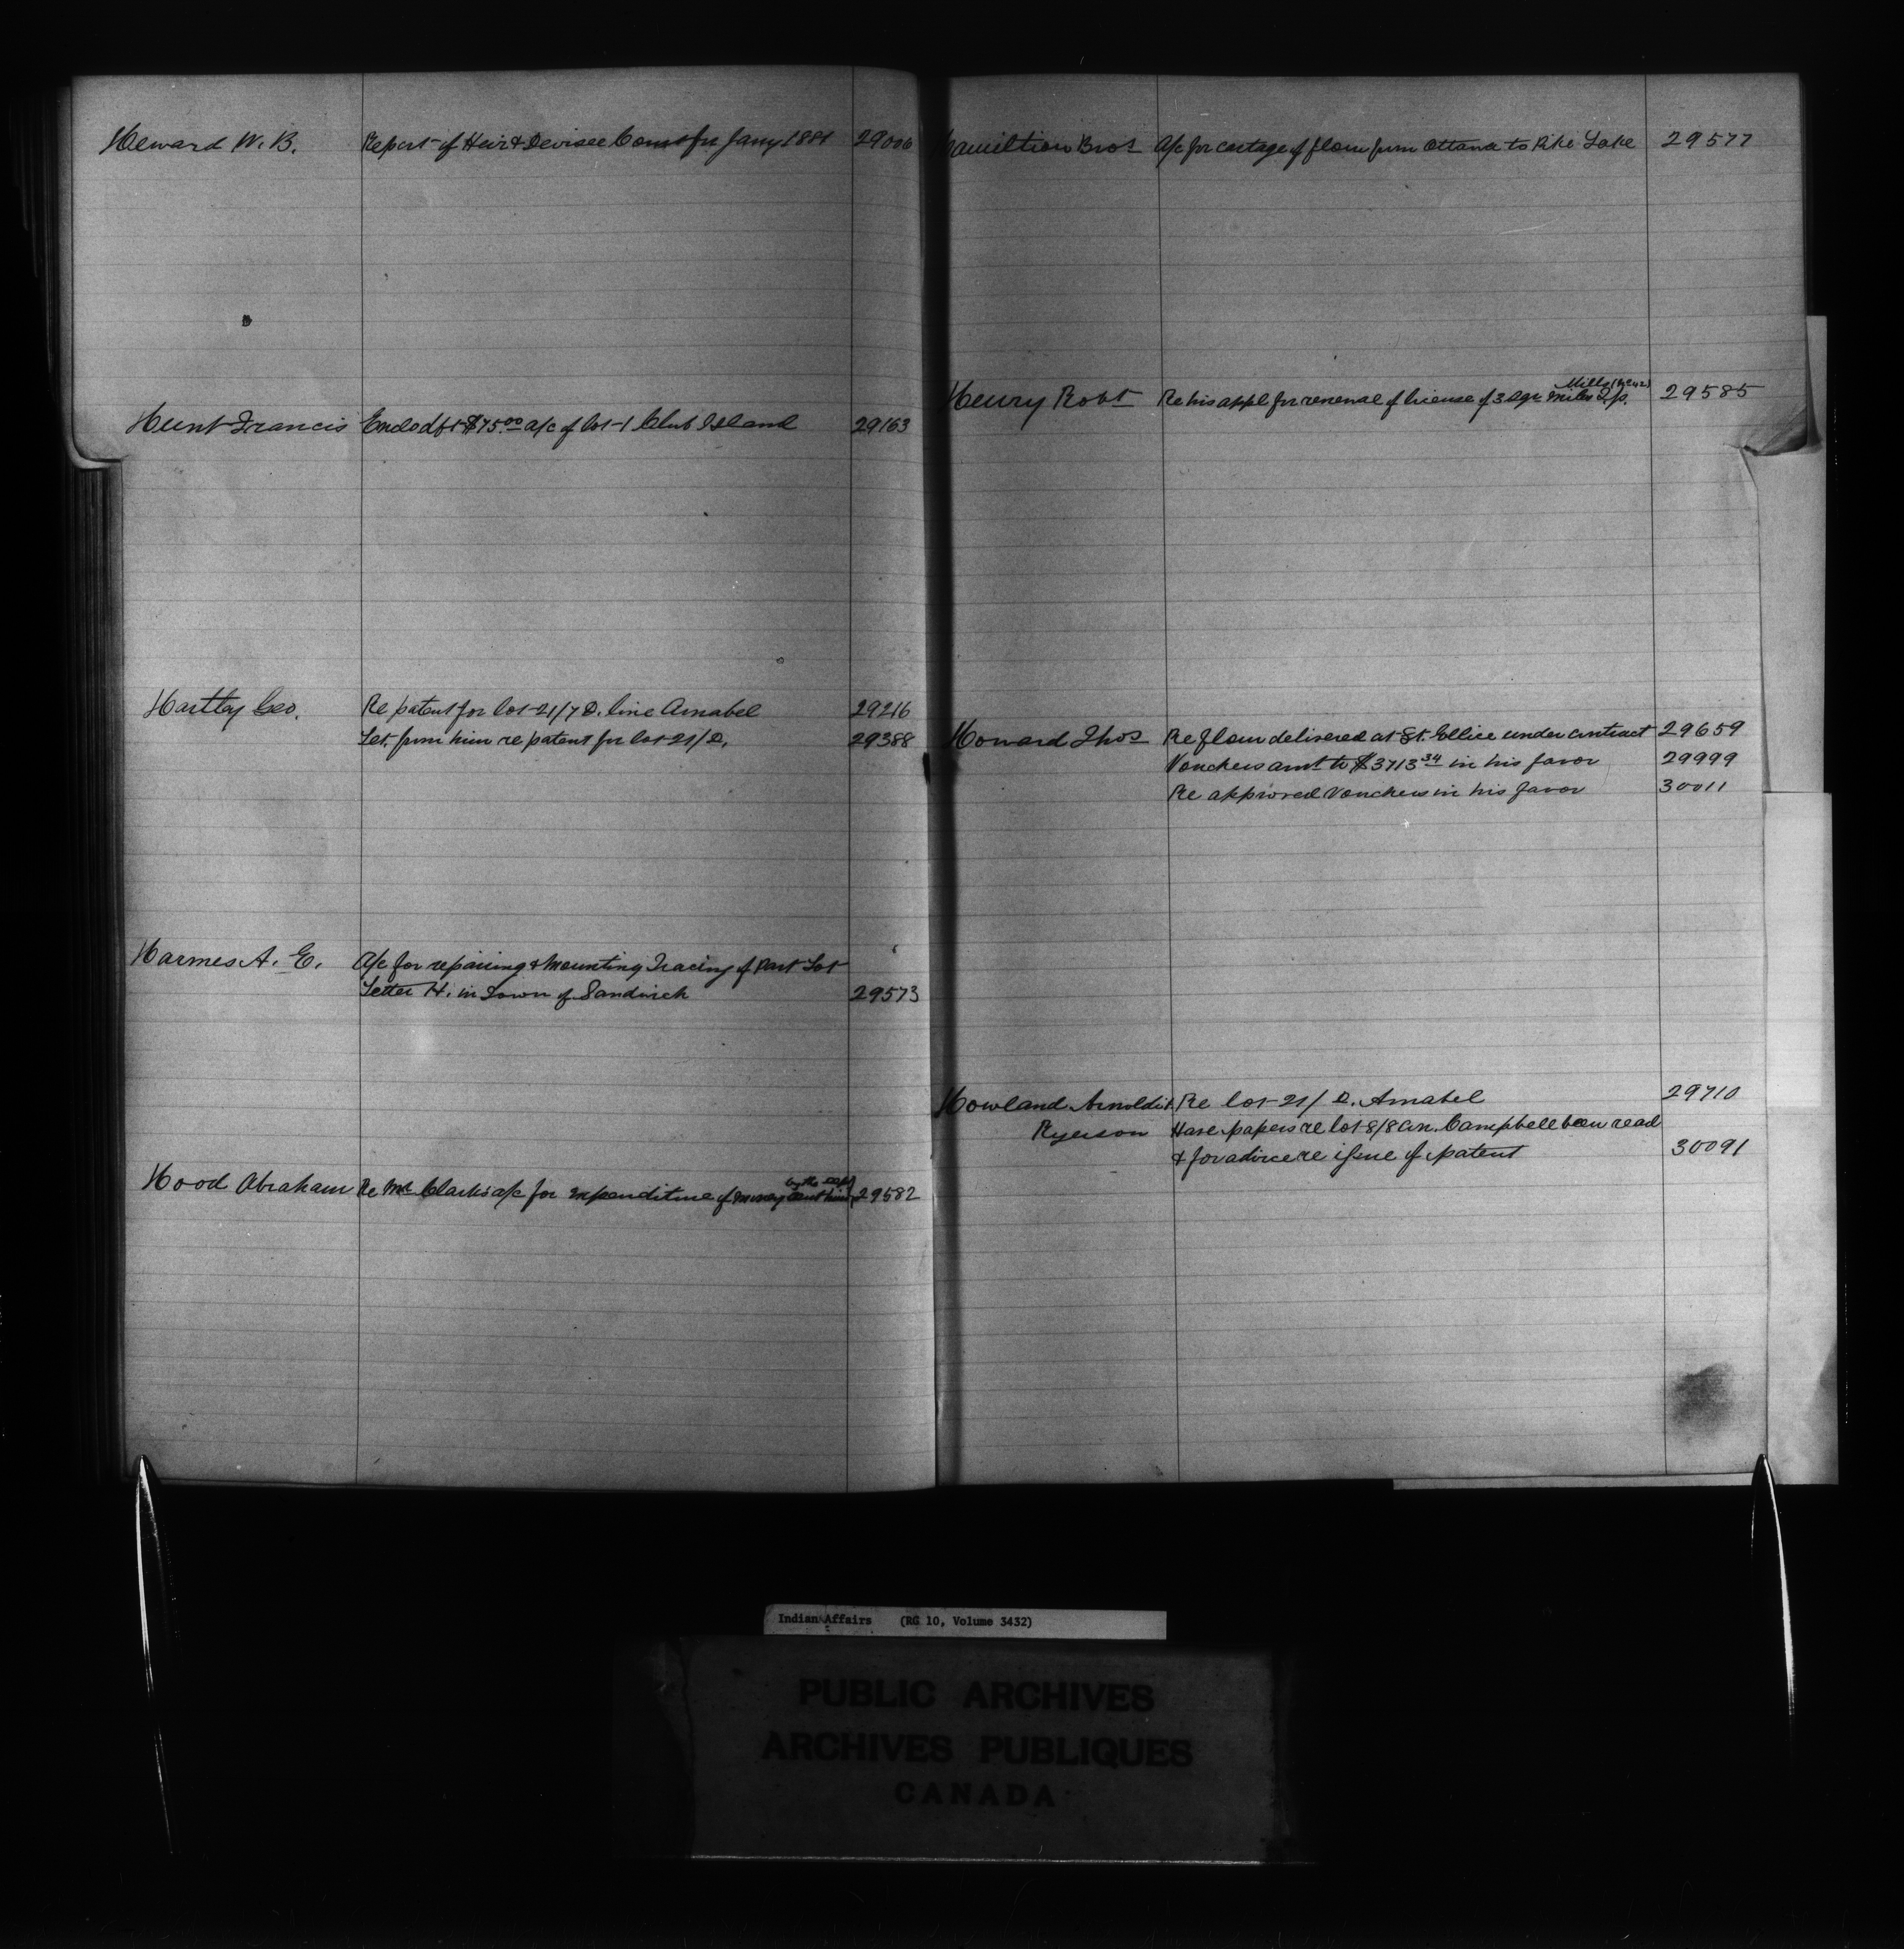 Heward W. B. Report of Heir & Devisee Comst for Jany 1881 29006
Hunt Francis Enclo dft $75.00 a/c of lot 1 Club Island 29163
Hartley Geo. Re patent for lot 21/7 D. line Amabel 29216
Let. from him re patent for lot 21/D. 29388
Harmes A. E. A/c for repairing & Mounting Tracing of Part Lot
Letter H. in Town of Sandwich 29573
Hood Abraham Re Mr Clark's a/c for expenditure of money sent him by the Dept 29582
Hamiltion Bros A/c for cartage of flour from Ottawa to Pike Lake 29577
Henry Robt Re his appl for renewal of license of 3 sqr miles Mills 29585
Howard Thos Re flour delivered at Ft. Ellice under contract 29659
Vouchers amt to $3713 34 in his favor 29999
Re approved vouchers in his favor 30011
Howland Arnoldi & Re lot 21/D. Amabel 29710
Ryerson Have papers re lot 8/8 Con. Campbell been read
& for advice re issue of patent 30091
Indian Affairs (RG 10, Volume 3432)
PUBLIC ARCHIVES
ARCHIVES PUBLIQUES
CANADA